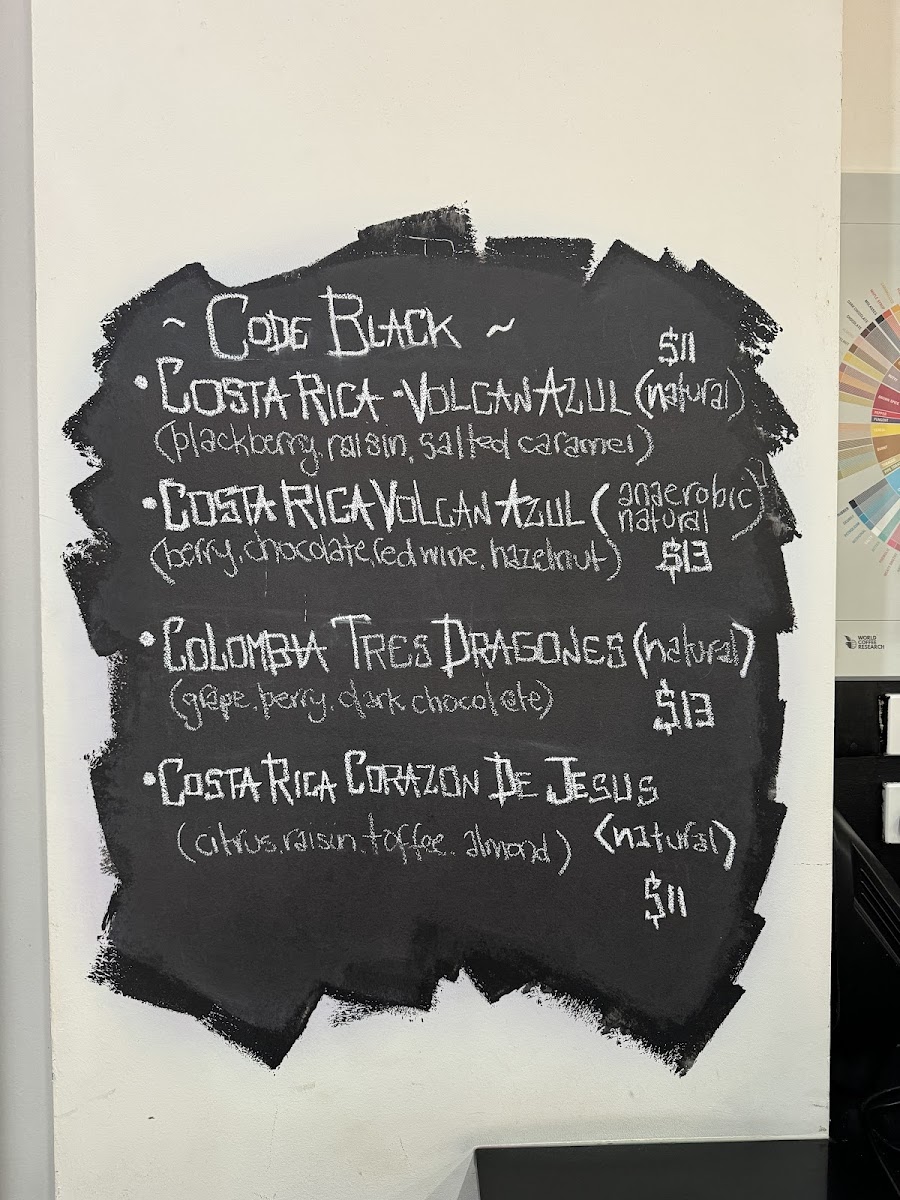 ~ CODE BLACK ~
$11
• COSTA RICA - VOLCAN AZUL (natural)
(blackberry, raisin, salted caramel)
• COSTA RICA VOLCAN AZUL (anaerobic natural)
(berry, chocolate, red wine, hazelnut) $13
• COLOMBIA TRES DRAGONES (natural)
(grape, berry, dark chocolate) $13
• COSTA RICA CORAZON DE JESUS
(citrus, raisin, toffee, almond) (natural)
$11
WORLD
COFFEE
RESEARCH